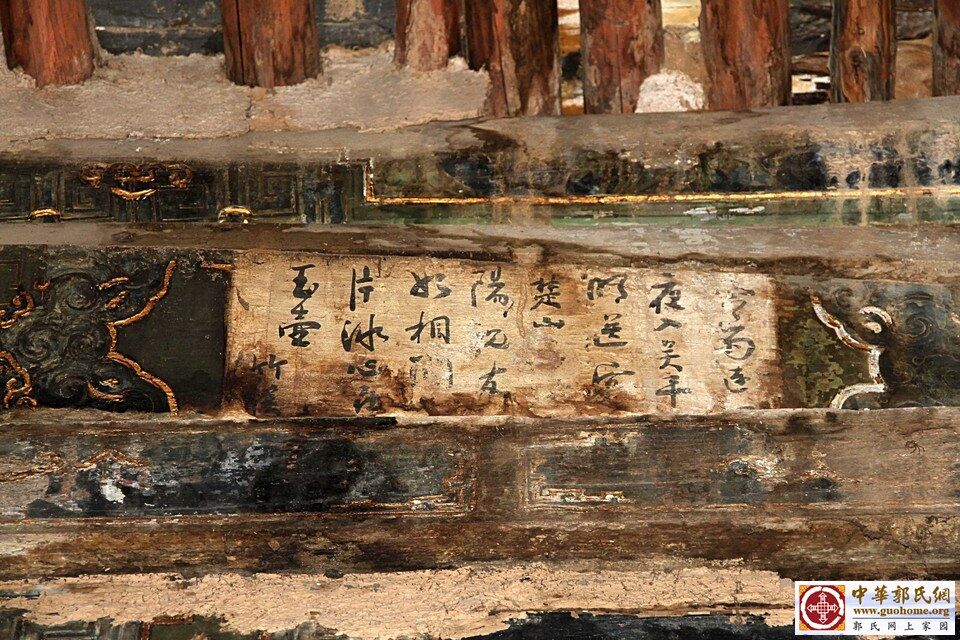 寒雨連
夜入吴平
明送客
楚山
陽親友
如相問
片冰心在
玉壺
竹
中華郭氏網
www.guohome.org
郭氏网上家园